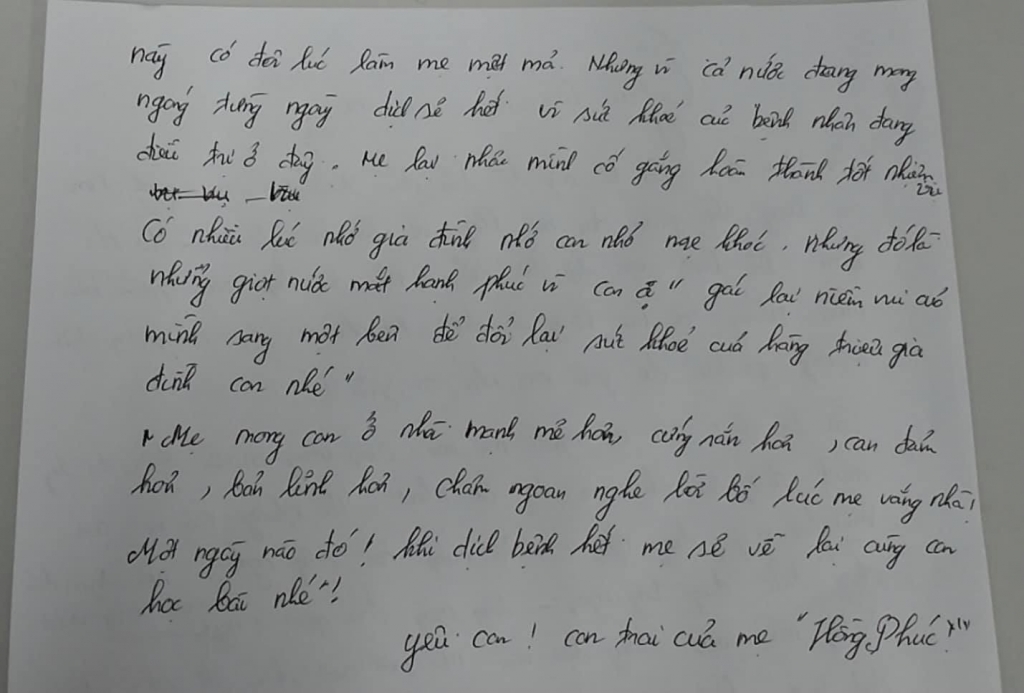 này có đôi lúc làm mẹ mệt mỏi. Nhưng vì cả nước đang mong
ngóng từng ngày dịch sẽ hết vì sức khoẻ các bệnh nhân đang
điều trị ở đây. Mẹ lại nhắc mình cố gắng hoàn thành tốt nhiệm
vụ
Có nhiều lúc nhớ gia đình nhớ con nhỏ mẹ khóc, nhưng đó là
những giọt nước mắt hạnh phúc vì con ạ " gác lại niềm vui của
mình sang một bên để đổi lại sức khoẻ của hàng triệu gia
đình con nhé "
Mẹ mong con ở nhà mạnh mẽ hơn, cứng rắn hơn, can đảm
hơn, bản lĩnh hơn, chăm ngoan nghe lời bố lúc mẹ vắng nhà!
Một ngày nào đó! khi dịch bệnh hết mẹ sẽ về lại cùng con
học bài nhé "!
yêu con! con trai của mẹ "Hồng Phúc"